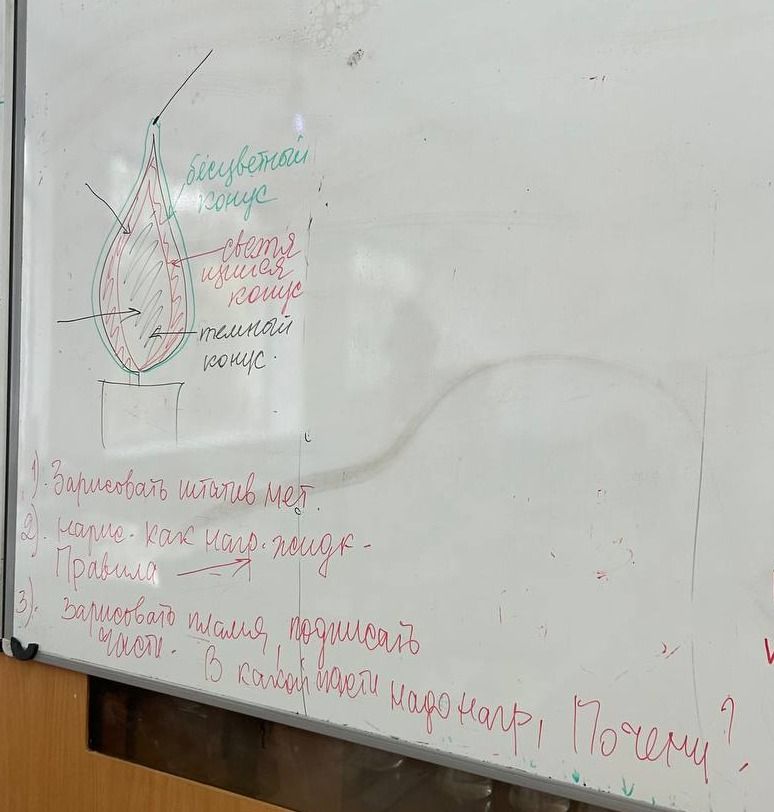 бесцветный
конус
светя
щийся
конус
темный
конус.
1). Зарисовать штатив мет.
2). нарис. как нагр. жидк-
Правила
3). Зарисовать пламя, подписать
части. В какой части надо нагр, Почему?